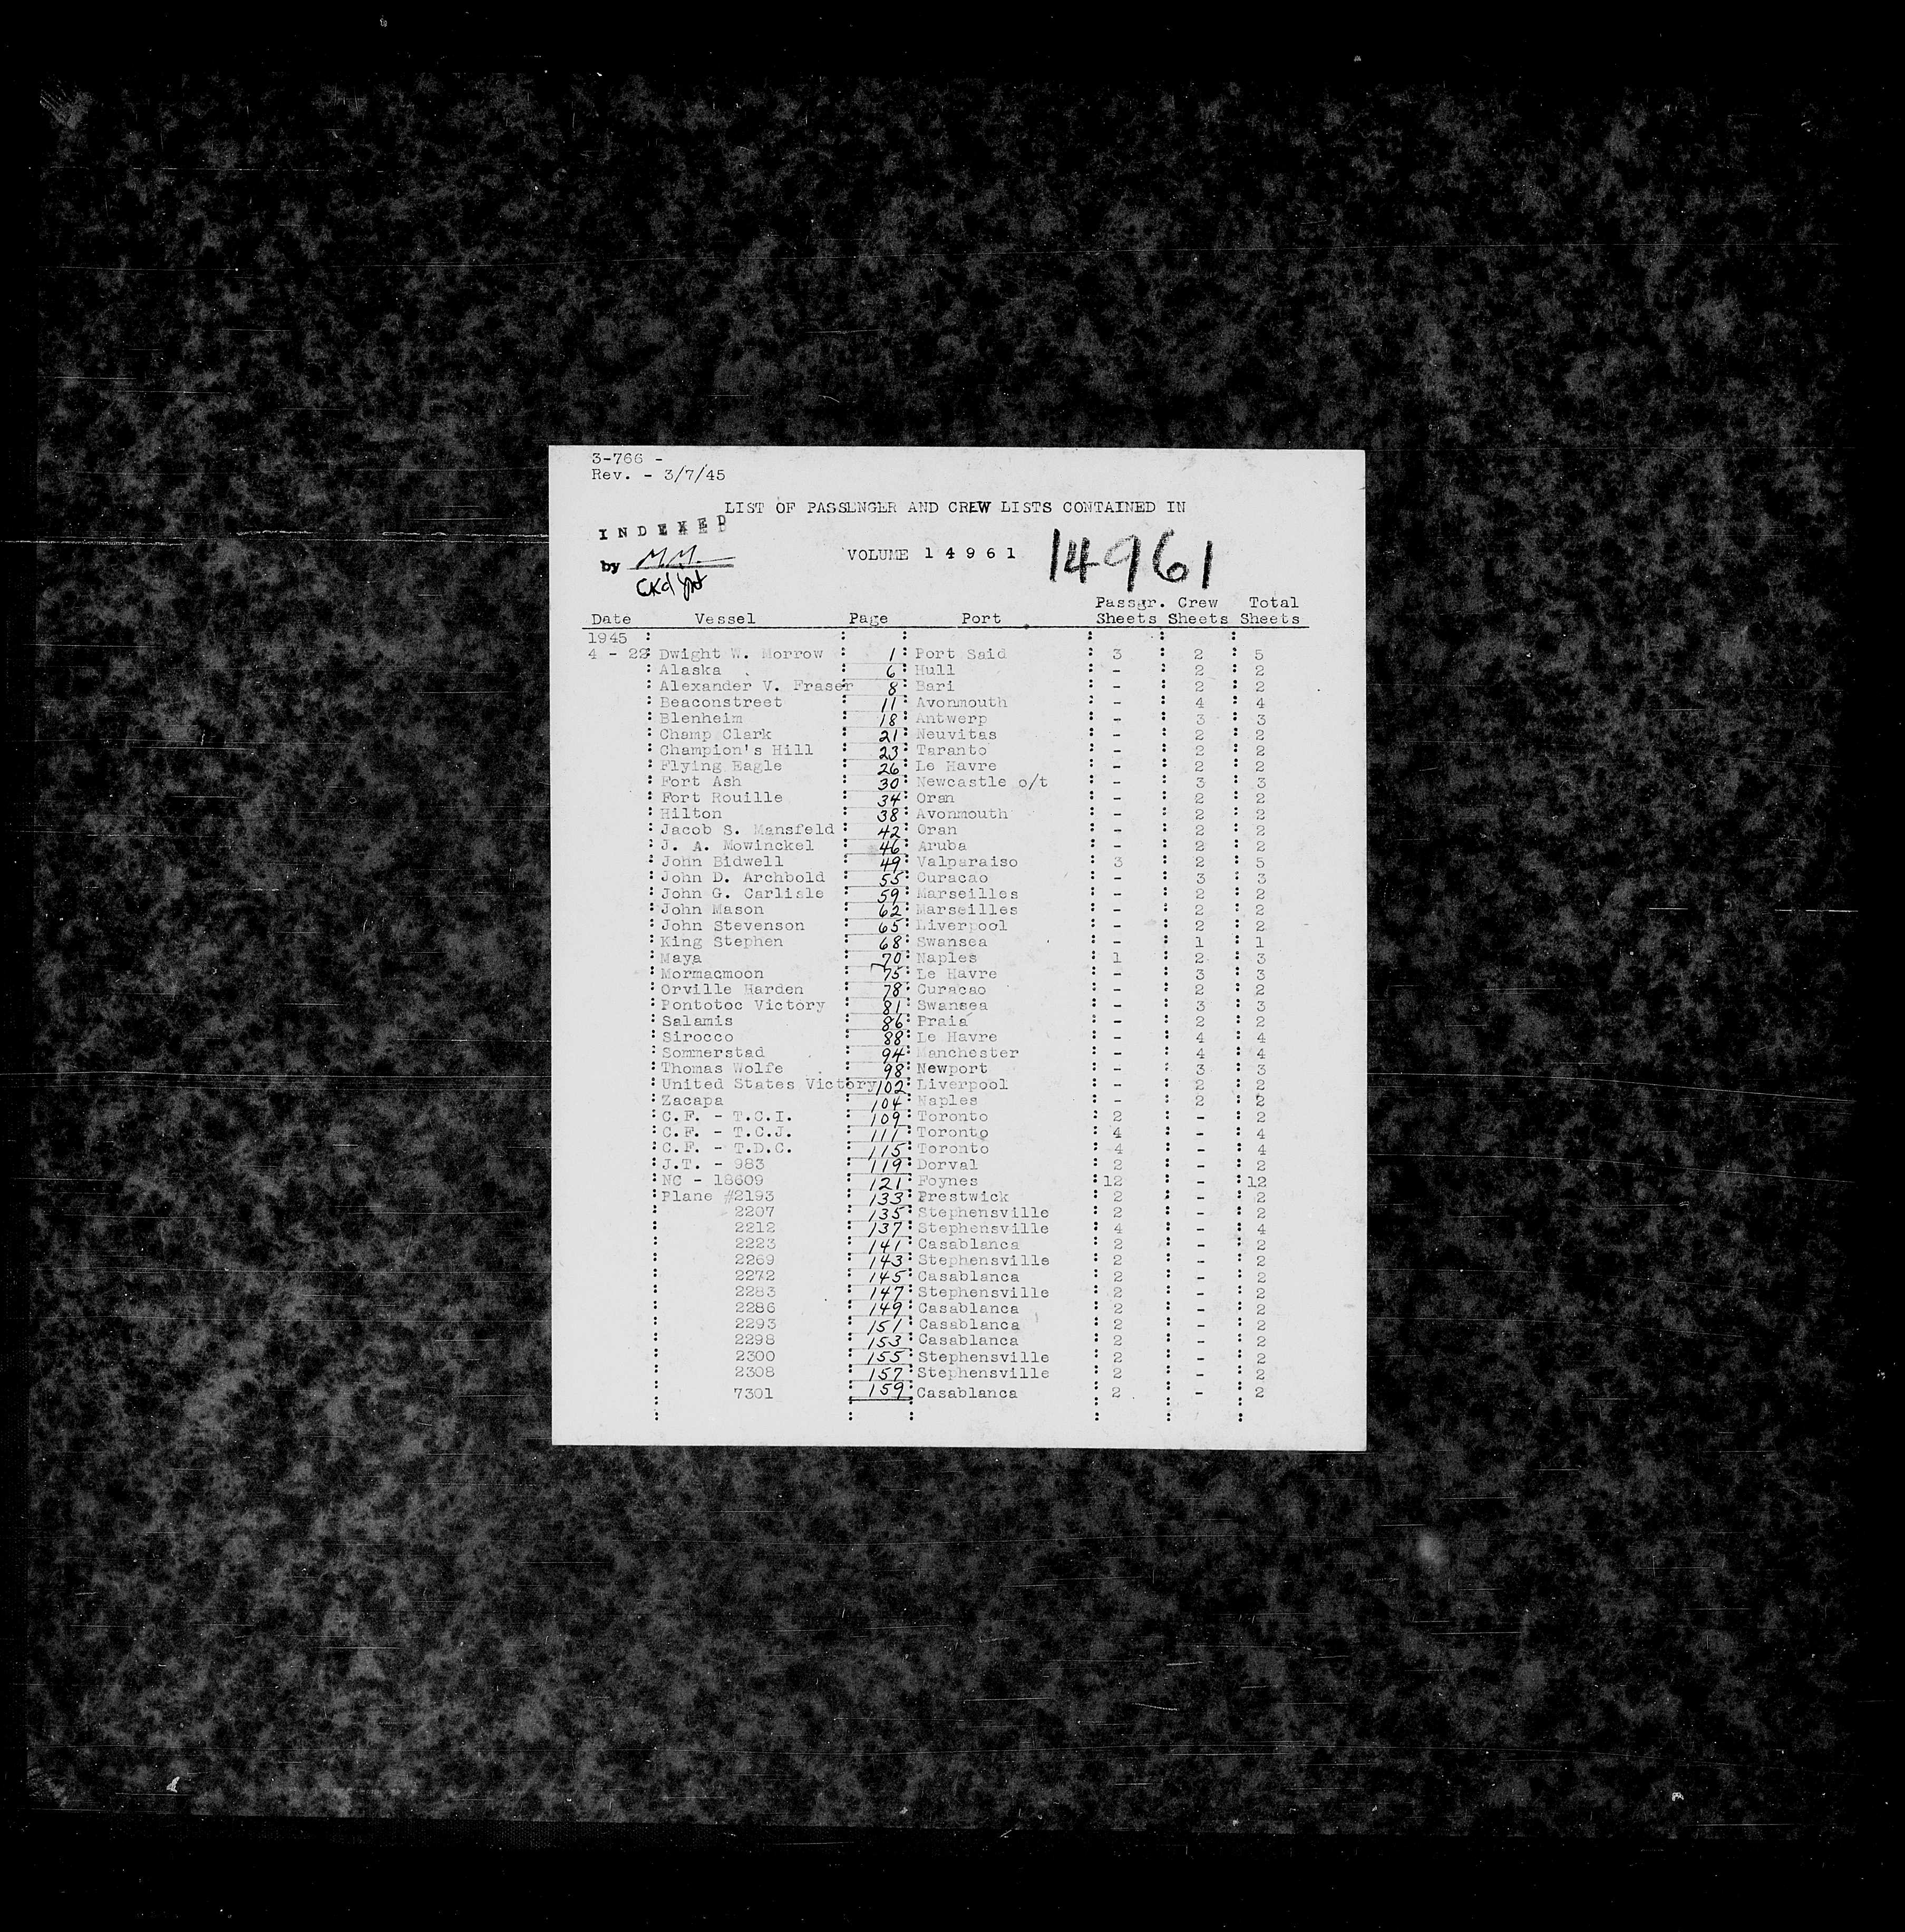 3-766 -
Rev. - 3/7/45
LIST OF PASSENGER AND CREW LISTS CONTAINED IN
INDEXED
by M.M.
VOLUME 14961 14961
Ckd
Passgr. Crew Total
Date Vessel Page Port Sheets Sheets Sheets
1945
4 - 22 Dwight W. Morrow 1 Port Said 3 2 5
Alaska 6 Hull - 2 2
Alexander V. Fraser 8 Bari - 2 2
Beaconstreet 11 Avonmouth - 4 4
Blenheim 18 Antwerp - 3 3
Champ Clark 21 Neuvitas - 2 2
Champion's Hill 23 Taranto - 2 2
Flying Eagle 26 Le Havre - 2 2
Fort Ash 30 Newcastle o/t - 3 3
Fort Rouille 34 Oran - 2 2
Hilton 38 Avonmouth - 2 2
Jacob S. Mansfeld 42 Oran - 2 2
J. A. Mowinckel 46 Aruba - 2 2
John Bidwell 49 Valparaiso 3 2 5
John D. Archbold 55 Curacao - 3 3
John G. Carlisle 59 Marseilles - 2 2
John Mason 62 Marseilles - 2 2
John Stevenson 65 Liverpool - 2 2
King Stephen 68 Swansea - 1 1
Maya 70 Naples 1 2 3
Mormacmoon 75 Le Havre - 3 3
Orville Harden 78 Curacao - 2 2
Pontotoc Victory 81 Swansea - 3 3
Salamis 86 Praia - 2 2
Sirocco 88 Le Havre - 4 4
Sommerstad 94 Manchester - 4 4
Thomas Wolfe 98 Newport - 3 3
United States Victory 102 Liverpool - 2 2
Zacapa 104 Naples - 2 2
C.F. - T.C.I. 109 Toronto 2 - 2
C.F. - T.C.J. 111 Toronto 4 - 4
C.F. - T.D.C. 115 Toronto 4 - 4
J.T. - 983 119 Dorval 2 - 2
NC - 18609 121 Foynes 12 - 12
Plane #2193 133 Prestwick 2 - 2
2207 135 Stephensville 2 - 2
2212 137 Stephensville 4 - 4
2223 141 Casablanca 2 - 2
2269 143 Stephensville 2 - 2
2272 145 Casablanca 2 - 2
2283 147 Stephensville 2 - 2
2286 149 Casablanca 2 - 2
2293 151 Casablanca 2 - 2
2298 153 Casablanca 2 - 2
2300 155 Stephensville 2 - 2
2308 157 Stephensville 2 - 2
7301 159 Casablanca 2 - 2